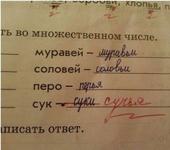 воробьи, хлопья, п
ть во множественном числе.
муравей – муравьи
соловей – соловьи
перо – перья
сук – суки сучья
аписать ответ.